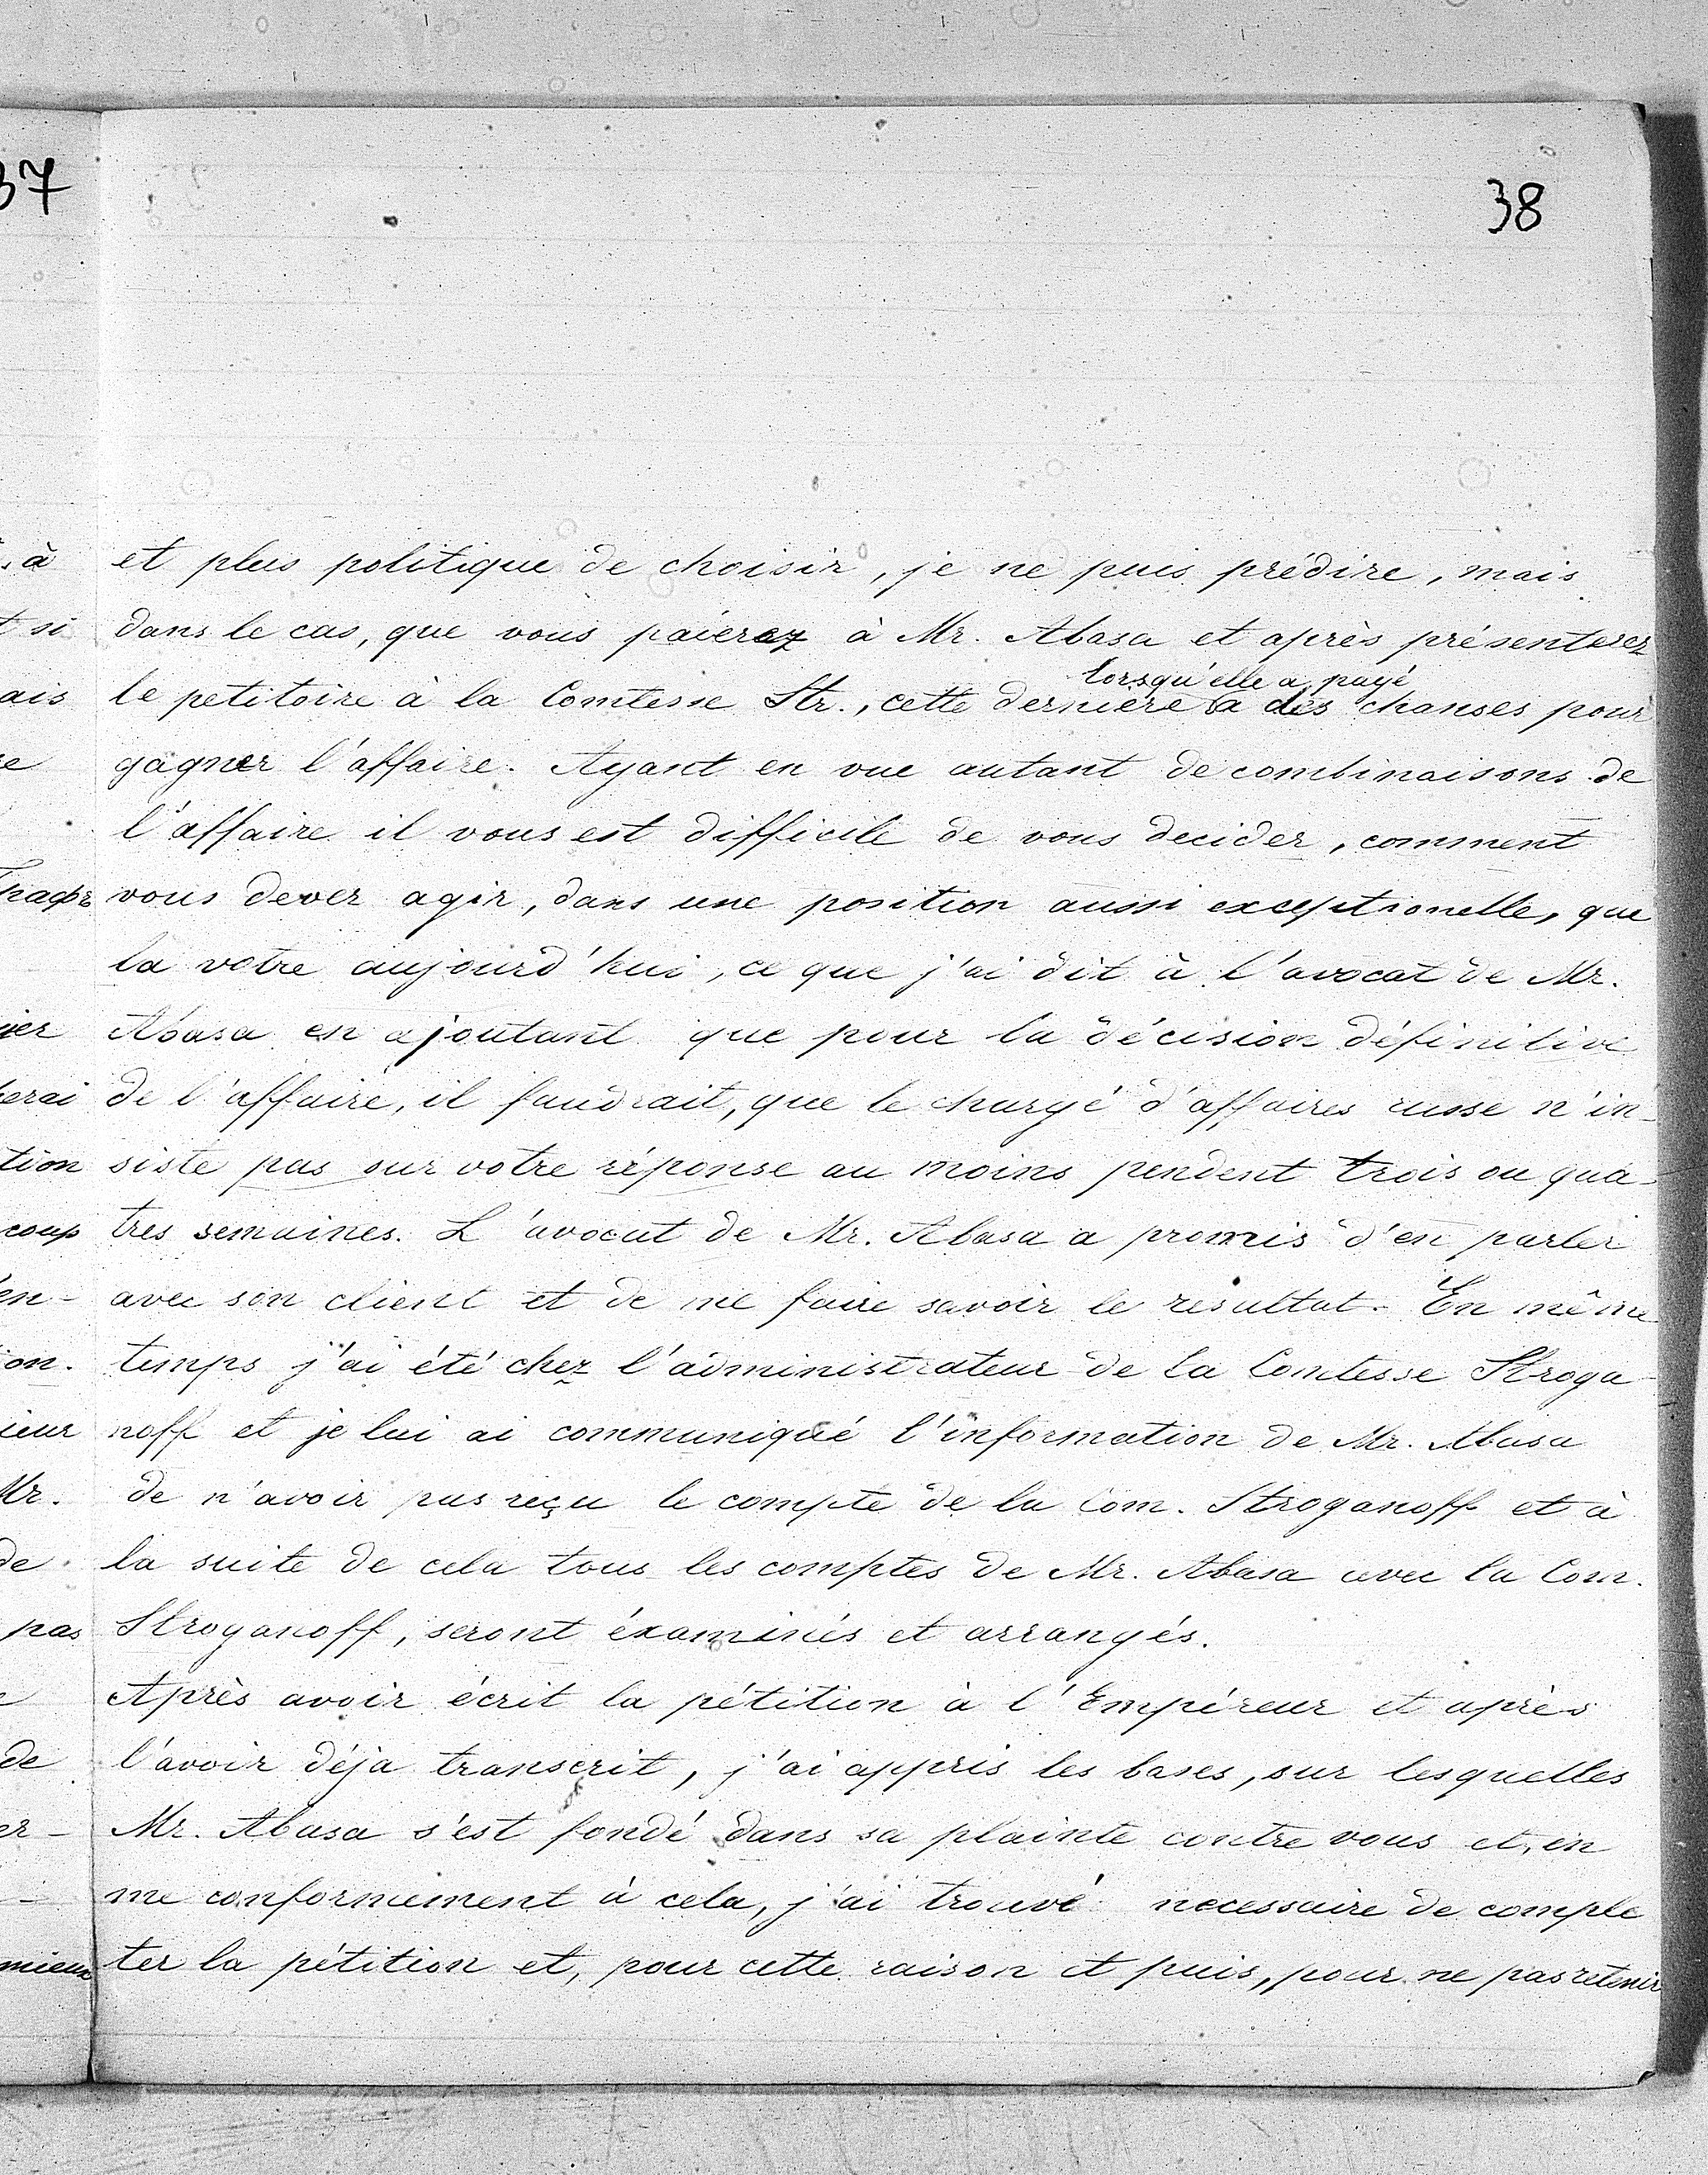 37
38
et plus politique de choisir, je ne puis prédire, mais
dans le cas, que vous paierez à Mr. Abasa et après présenterez
lorsqu'elle a payé
le petitoire à la Comtesse Str., cette dernière a des chanses pour
gagner l'affaire. Ayant en vue autant de combinaisons de
l'affaire il vous est difficile de vous decider, comment
vous dever agir, dans une position aussi exceptionelle, que
la votre aujourd'hui, ce que j'ai dit à l'avocat de Mr.
Abasa en ajoutant que pour la décision définitive
de l'affaire, il faudrait, que le chargé d'affaires russe n'in-
siste pas sur votre réponse au moins pendent trois ou qua-
tres semaines. L'avocat de Mr. Abasa a promis d'en parler
avec son client et de me faire savoir le résultat. En même
temps j'ai été chez l'administrateur de la Comtesse Stroga-
noff et je lui ai communiqué l'information de Mr. Abasa
de n'avoir pas reçu le compte de la Com. Stroganoff et à
la suite de cela tous les comptes de Mr. Abasa avec la Com.
Stroganoff, seront éxaminés et arrangés.
Après avoir écrit la pétition à l'Empéreur et après
l'avoir déja transcrit, j'ai appris les bases, sur lesquelles
Mr. Abasa s'est fondé dans sa plainte contre vous et, en
me conformement à cela, j'ai trouvé necessaire de comple
ter la pétition et, pour cette raison et puis, pour ne pas retenir